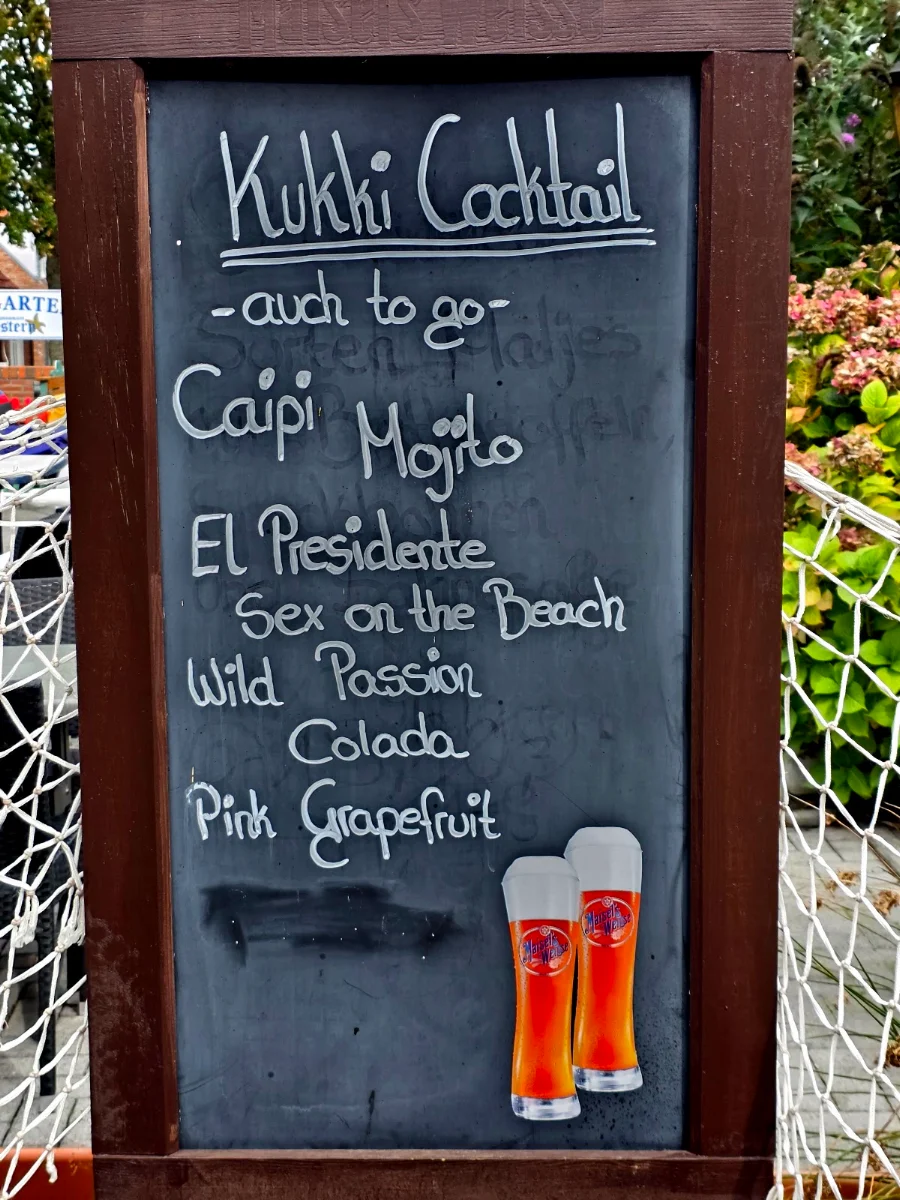 Meisel's Weisse
Kukki Cocktail
-auch to go-
Caipi
Mojito
El Presidente
Sex on the Beach
Wild Passion
Colada
Pink Grapefruit
Meisel's
Weisse
Meisel's
Weisse